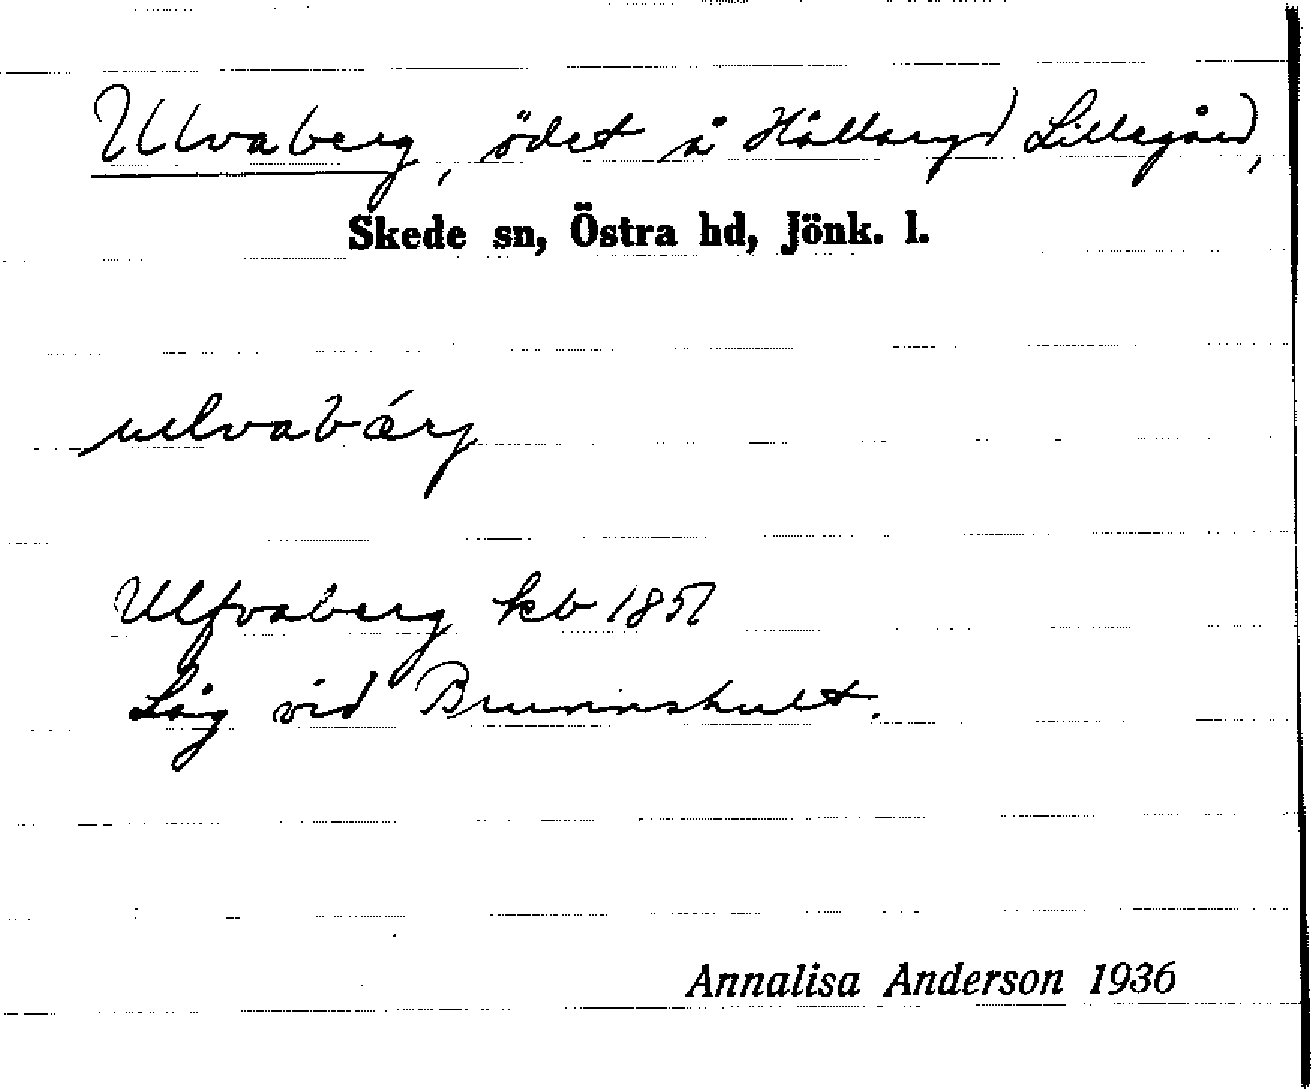 Ulvaberg, ödet å Hållaryd Lillegård,
Skede sn, Östra hd, Jönk. l.
ulvabárj
Ulfvaberg kb 1857
Låg vid Brunnshult.
Annalisa Anderson 1936